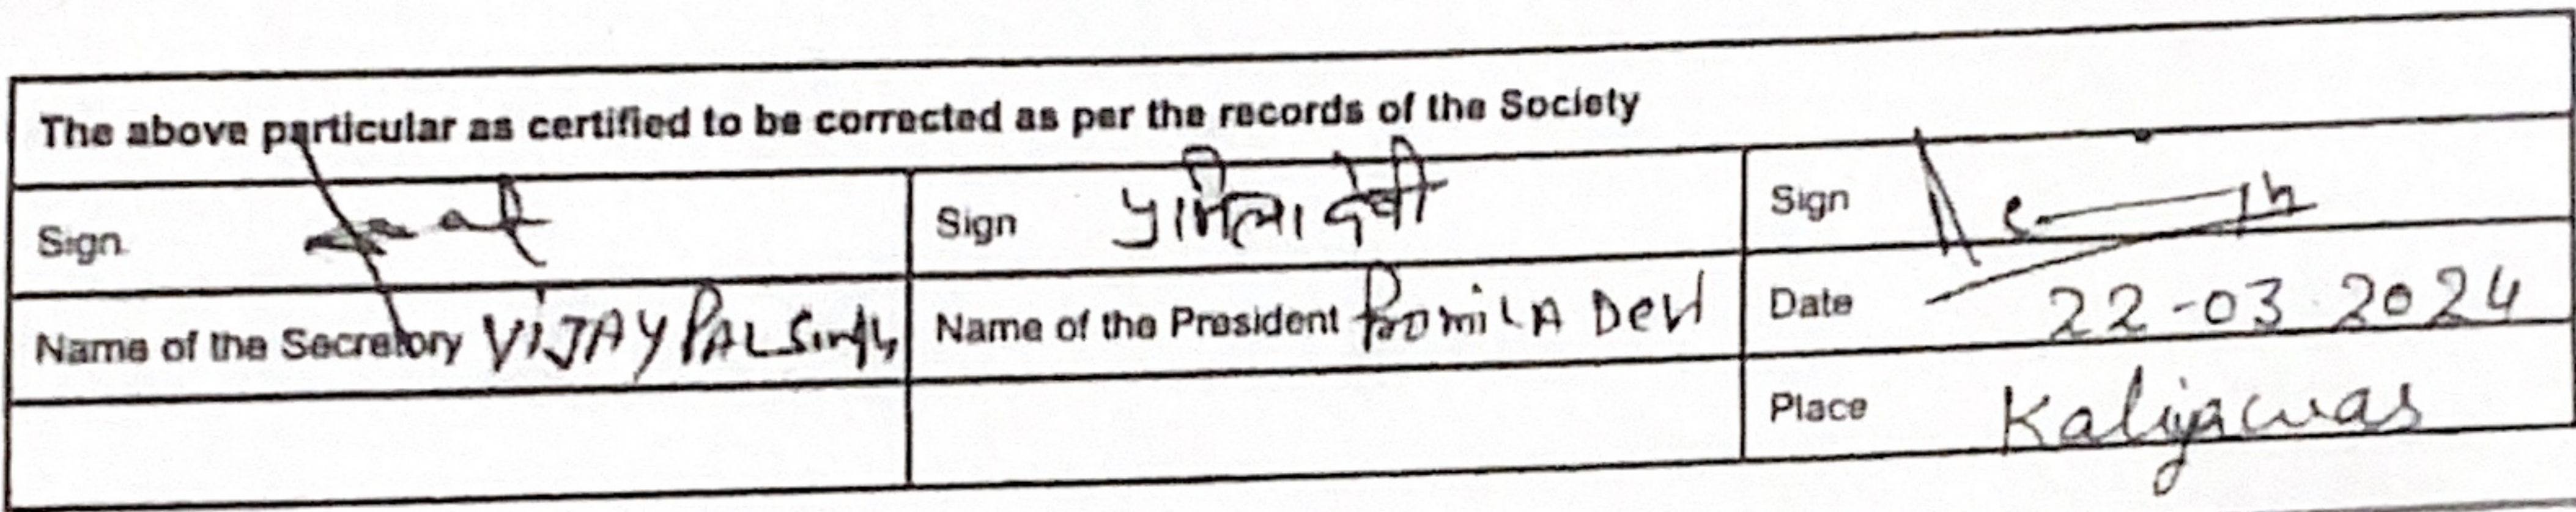 The above particular as certified to be corrected as per the records of the Society
Sign प्रमिला देवी Sign Sign
Name of the Secretory VIJAY PAL Singh Name of the President Promila Devi Date 22-03-2024
Place Kaliyawas